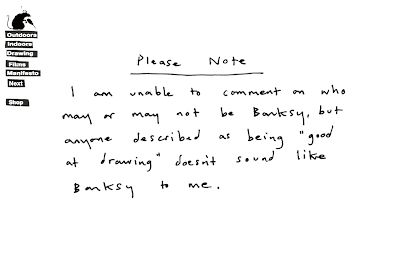 Outdoors
Indoors
Drawing
Films
Manifesto
Next
Shop
Please Note
I am unable to comment on who
may or may not be Banksy, but
anyone described as being "good
at drawing" doesn't sound like
Banksy to me.